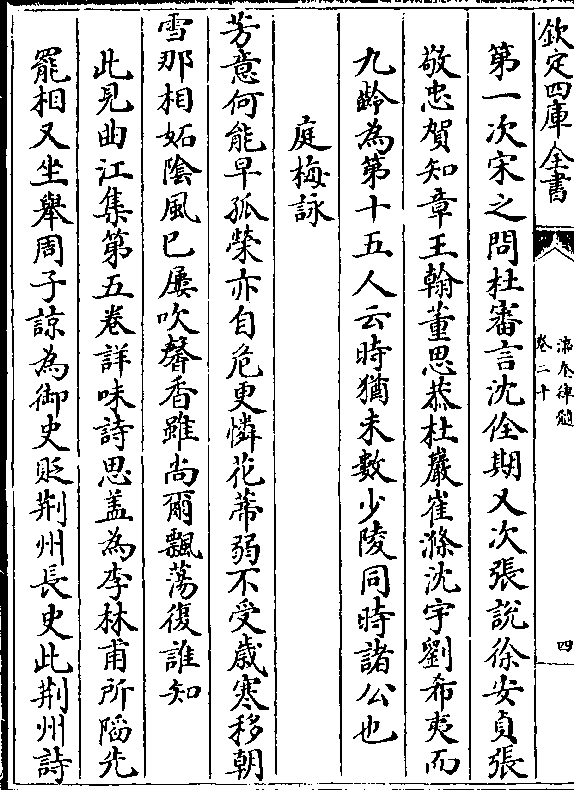 欽定四庫全書
瀛奎律髓
卷二十
四
第一次宋之問杜審言沈佺期又次張説徐安貞張
敬忠賀知章王翰董思恭杜嚴崔滌沈宇劉希夷而
九齡為第十五人云時猶未數少陵同時諸公也
庭梅詠
芳意何能早孤榮亦自危更憐花蔕弱不受歲寒移朝
雪那相妬隂風已屢吹馨香雖尚爾飄蕩復誰知
此見曲江集第五卷詳味詩思盖為李林甫所陷先
罷相又坐舉周子諒為御史貶荆州長史此荆州詩